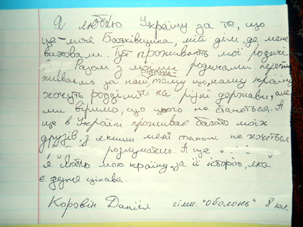 Я люблю Україну за то, що
це - моя Батьківщина, мій дім, де мене
виховали. Тут проживають мої родичі.
Разом з моїми родичами пережи-
ваємо за нашу країну
хочуть розділити на різні держави, але
ми віримо, що цього не станеться. А
ще в Україні проживає багато моїх
друзів, з якими мені також не хочеться
розлучатись. А ще
я люблю мою країну за її історію, яка
є дуже цікава.
Коровін Даніїл гімн. "Оболонь" 8 кл.